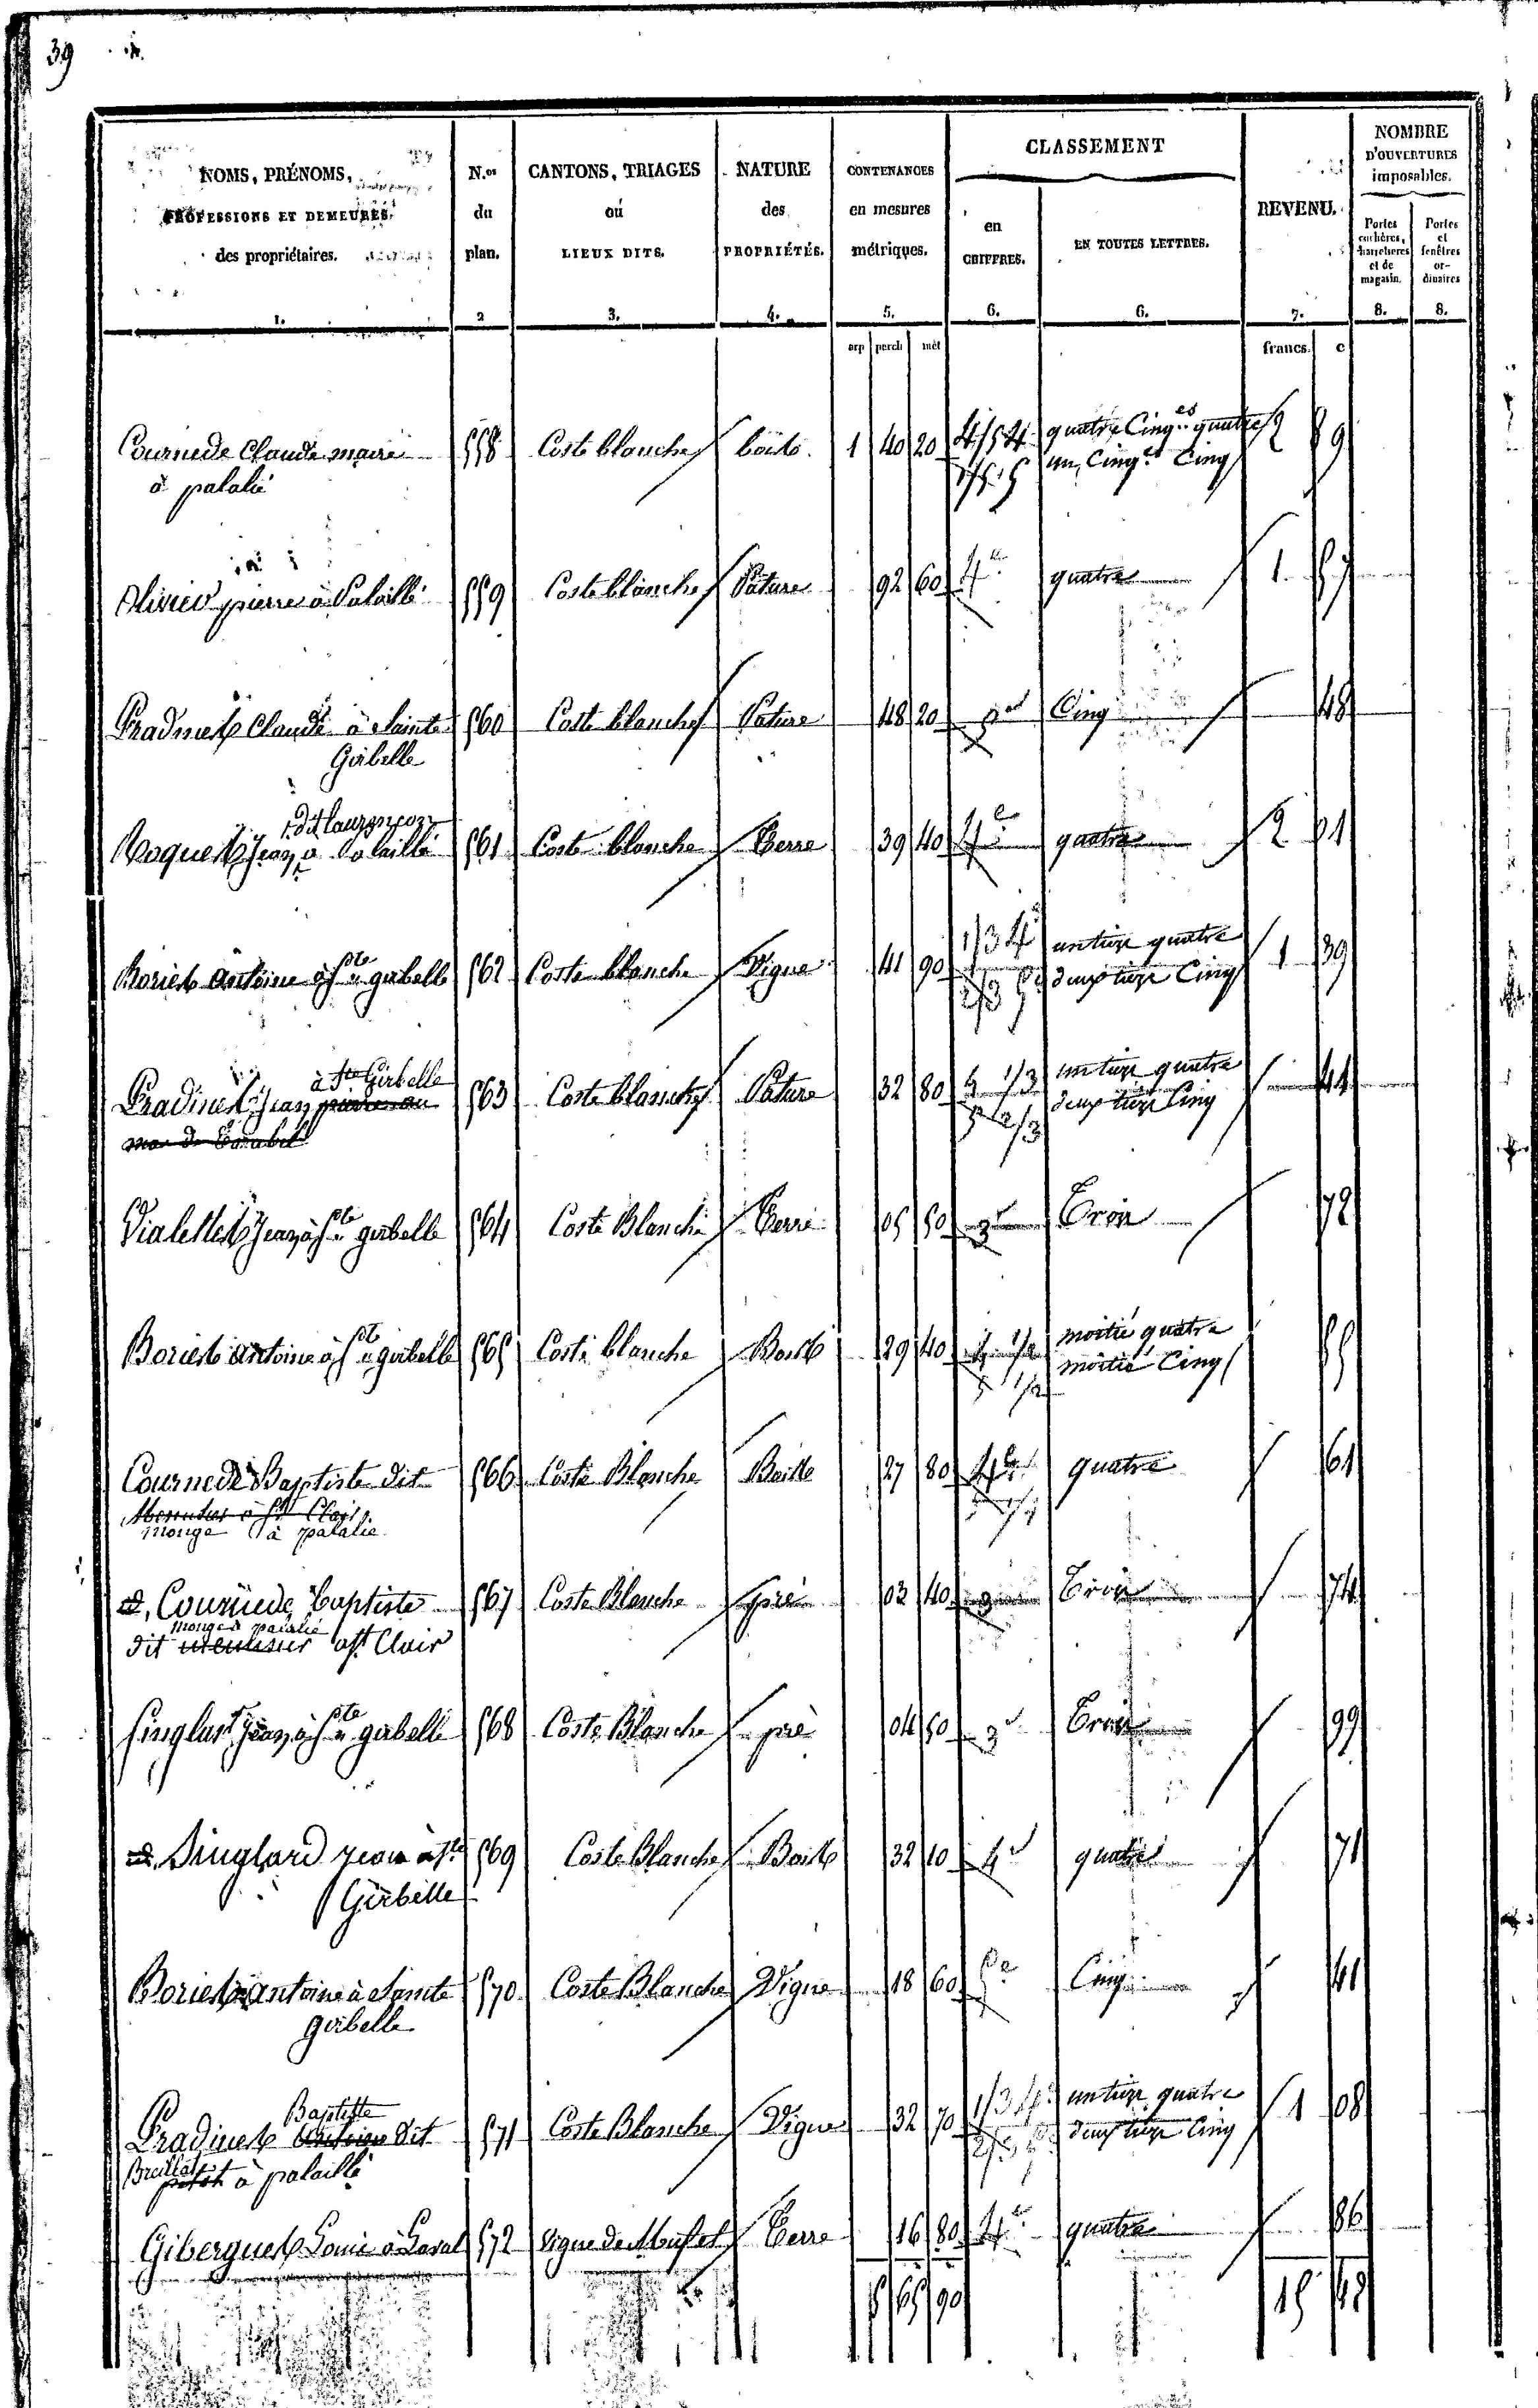 39
NOMS, PRÉNOMS,
PROFESSIONS ET DEMEURES.
des propriétaires.
1.
N.os
du
plan.
2
CANTONS, TRIAGES
ou
LIEUX DITS.
3.
NATURE
des
PROPRIÉTÉS.
4.
CONTENANCES
en mesures
métriques.
5.
CLASSEMENT
en
CHIFFRES.
6.
EN TOUTES LETTRES.
6.
REVENU.
7.
NOMBRE
D'OUVERTURES
imposables.
Portes
cochères,
charretières
et de
magasin.
8.
Portes
et
fenêtres
or-
dinaires
8.
arp perch mèt
francs. c
Cournede Claude maire 558 Coste blanche boile. 1 40 20 4/5 4 quatre Cinq.es quatre 2 89
à palalié 1/5 5 un Cinq.e Cinq
Olivier pierre à Palaillé 559 Coste blanche Pature 92 60 4.e quatre 1 87
Pradines Claude à Sainte 560 Coste blanche Pature 48 20 5e Cinq 48
Girbelle
dit
à Palaillé 561 Coste blanche Terre 39 40 4.e quatre 2 01
Bories Antoine à S.te girbelle 562 Coste blanche Vigne 41 90 1/3 4 un tiers quatre 1 39
2/3 5 deux tiers Cinq
à Ste Girbelle
Pradines Jean 563 Coste blanche Pature 32 80 4 1/3 un tiers quatre 44
5 2/3 deux tiers Cinq
Vialettes Jean à S.te girbelle 564 Coste Blanche Terre 05 50 3e Trois 72
Bories Antoine à S.te girbelle 565 Coste blanche Bois 29 40 4 1/2 moitié quatre 55
5 1/2 moitié Cinq
Cournede Baptiste dit 566 Coste Blanche 27 80 4.e quatre 61
monge à palalie
Cournede Baptiste 567 Coste Blanche pré 03 40 3 Trois 74
monge à palalié
dit à St Clair
Singlar Jean à S.te girbelle 568 Coste Blanche pré 04 50 3e Trois 99
Singlard jean à Ste 569 Coste Blanche 32 10 4e quatre 71
Girbelle
Bories Antoine à Sainte 570 Coste Blanche Vigne 18 60 5e Cinq 41
girbelle
Baptiste
Pradines dit 571 Coste Blanche Vigne 32 70 1/3 4. un tiers quatre 1 08
à palaillé 2/3 5 deux tiers Cinq
Gibergues Louis à Laval 572 Terre 16 80 4.e quatre 86
5 65 90 15